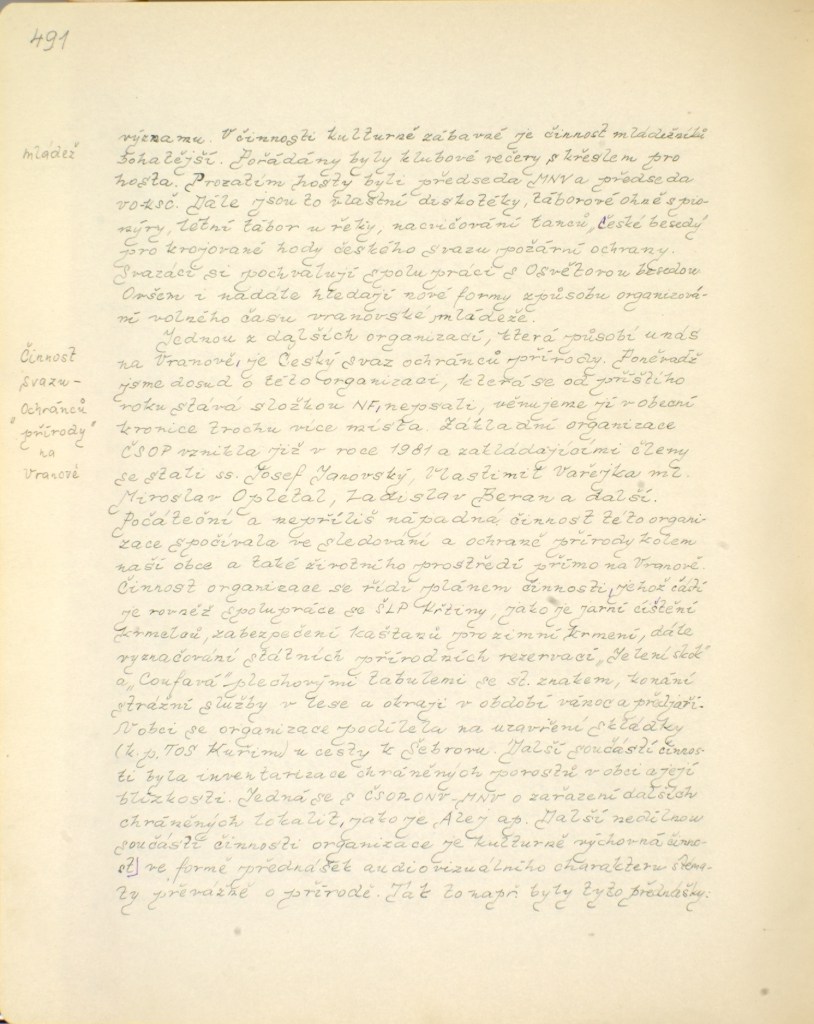 491
mládež
významu. V činnosti kulturně zábavné je činnost mládežníků
bohatější. Pořádány byly klubové večery s křeslem pro
hosta. Prozatím hosty byli předseda MNV a předseda
VO KSČ. Dále jsou to vlastní diskotéky, táborové ohně s pio-
nýry, letní tábor u řeky, nacvičování tanců, české besedy
pro krojované hody českého svazu požární ochrany.
Svazáci si pochvalují spolupráci s Osvětovou besedou
Ovšem i nadále hledají nové formy způsobu organizová-
ní volného času vranovské mládeže.
Činnost
svazu -
"Ochránců
přírody"
na
Vranově
Jednou z dalších organizací, která působí u nás
na Vranově, je Český svaz ochránců přírody. Poněvadž
jsme dosud o této organizaci, která se od příštího
roku stává složkou NF, nepsali, věnujeme jí v obecní
kronice trochu více místa. Základní organizace
ČSOP vznikla již v roce 1981 a zakládajícími členy
se stali ss. Josef Janovský, Vlastimil Vařejka ml.
Miroslav Opletal, Ladislav Beran a další.
Počáteční a nepříliš nápadná činnost této organi-
zace spočívala ve sledování a ochraně přírody kolem
naší obce a také životního prostředí přímo na Vranově.
Činnost organizace se řídí plánem činnosti, jehož částí
je rovněž spolupráce se ŠLP Křtiny, jako je jarní čištění
krmelců, zabezpečení kaštanů pro zimní krmení, dále
vyznačování státních přírodních rezervací „Jelení skok"
a „Coufavá" plechovými tabulemi se st. znakem, konání
strážní služby v lese a okraji v období vánoc a předjaří.
V obci se organizace podílela na uzavření skládky
(k.p. TOS Kuřim) u cesty k Šebrovu. Další součástí činnos-
ti byla inventarizace chráněných porostů v obci a její
blízkosti. Jedná se s ČSOP-ONV-MNV o zařazení dalších
chráněných lokalit, jako je Alej ap. Další nedílnou
součástí činnosti organizace je kulturně výchovná činno-
st ve formě přednášek audiovizuálního charakteru s
ty převážně o přírodě. Tak to např. byly tyto přednášky: